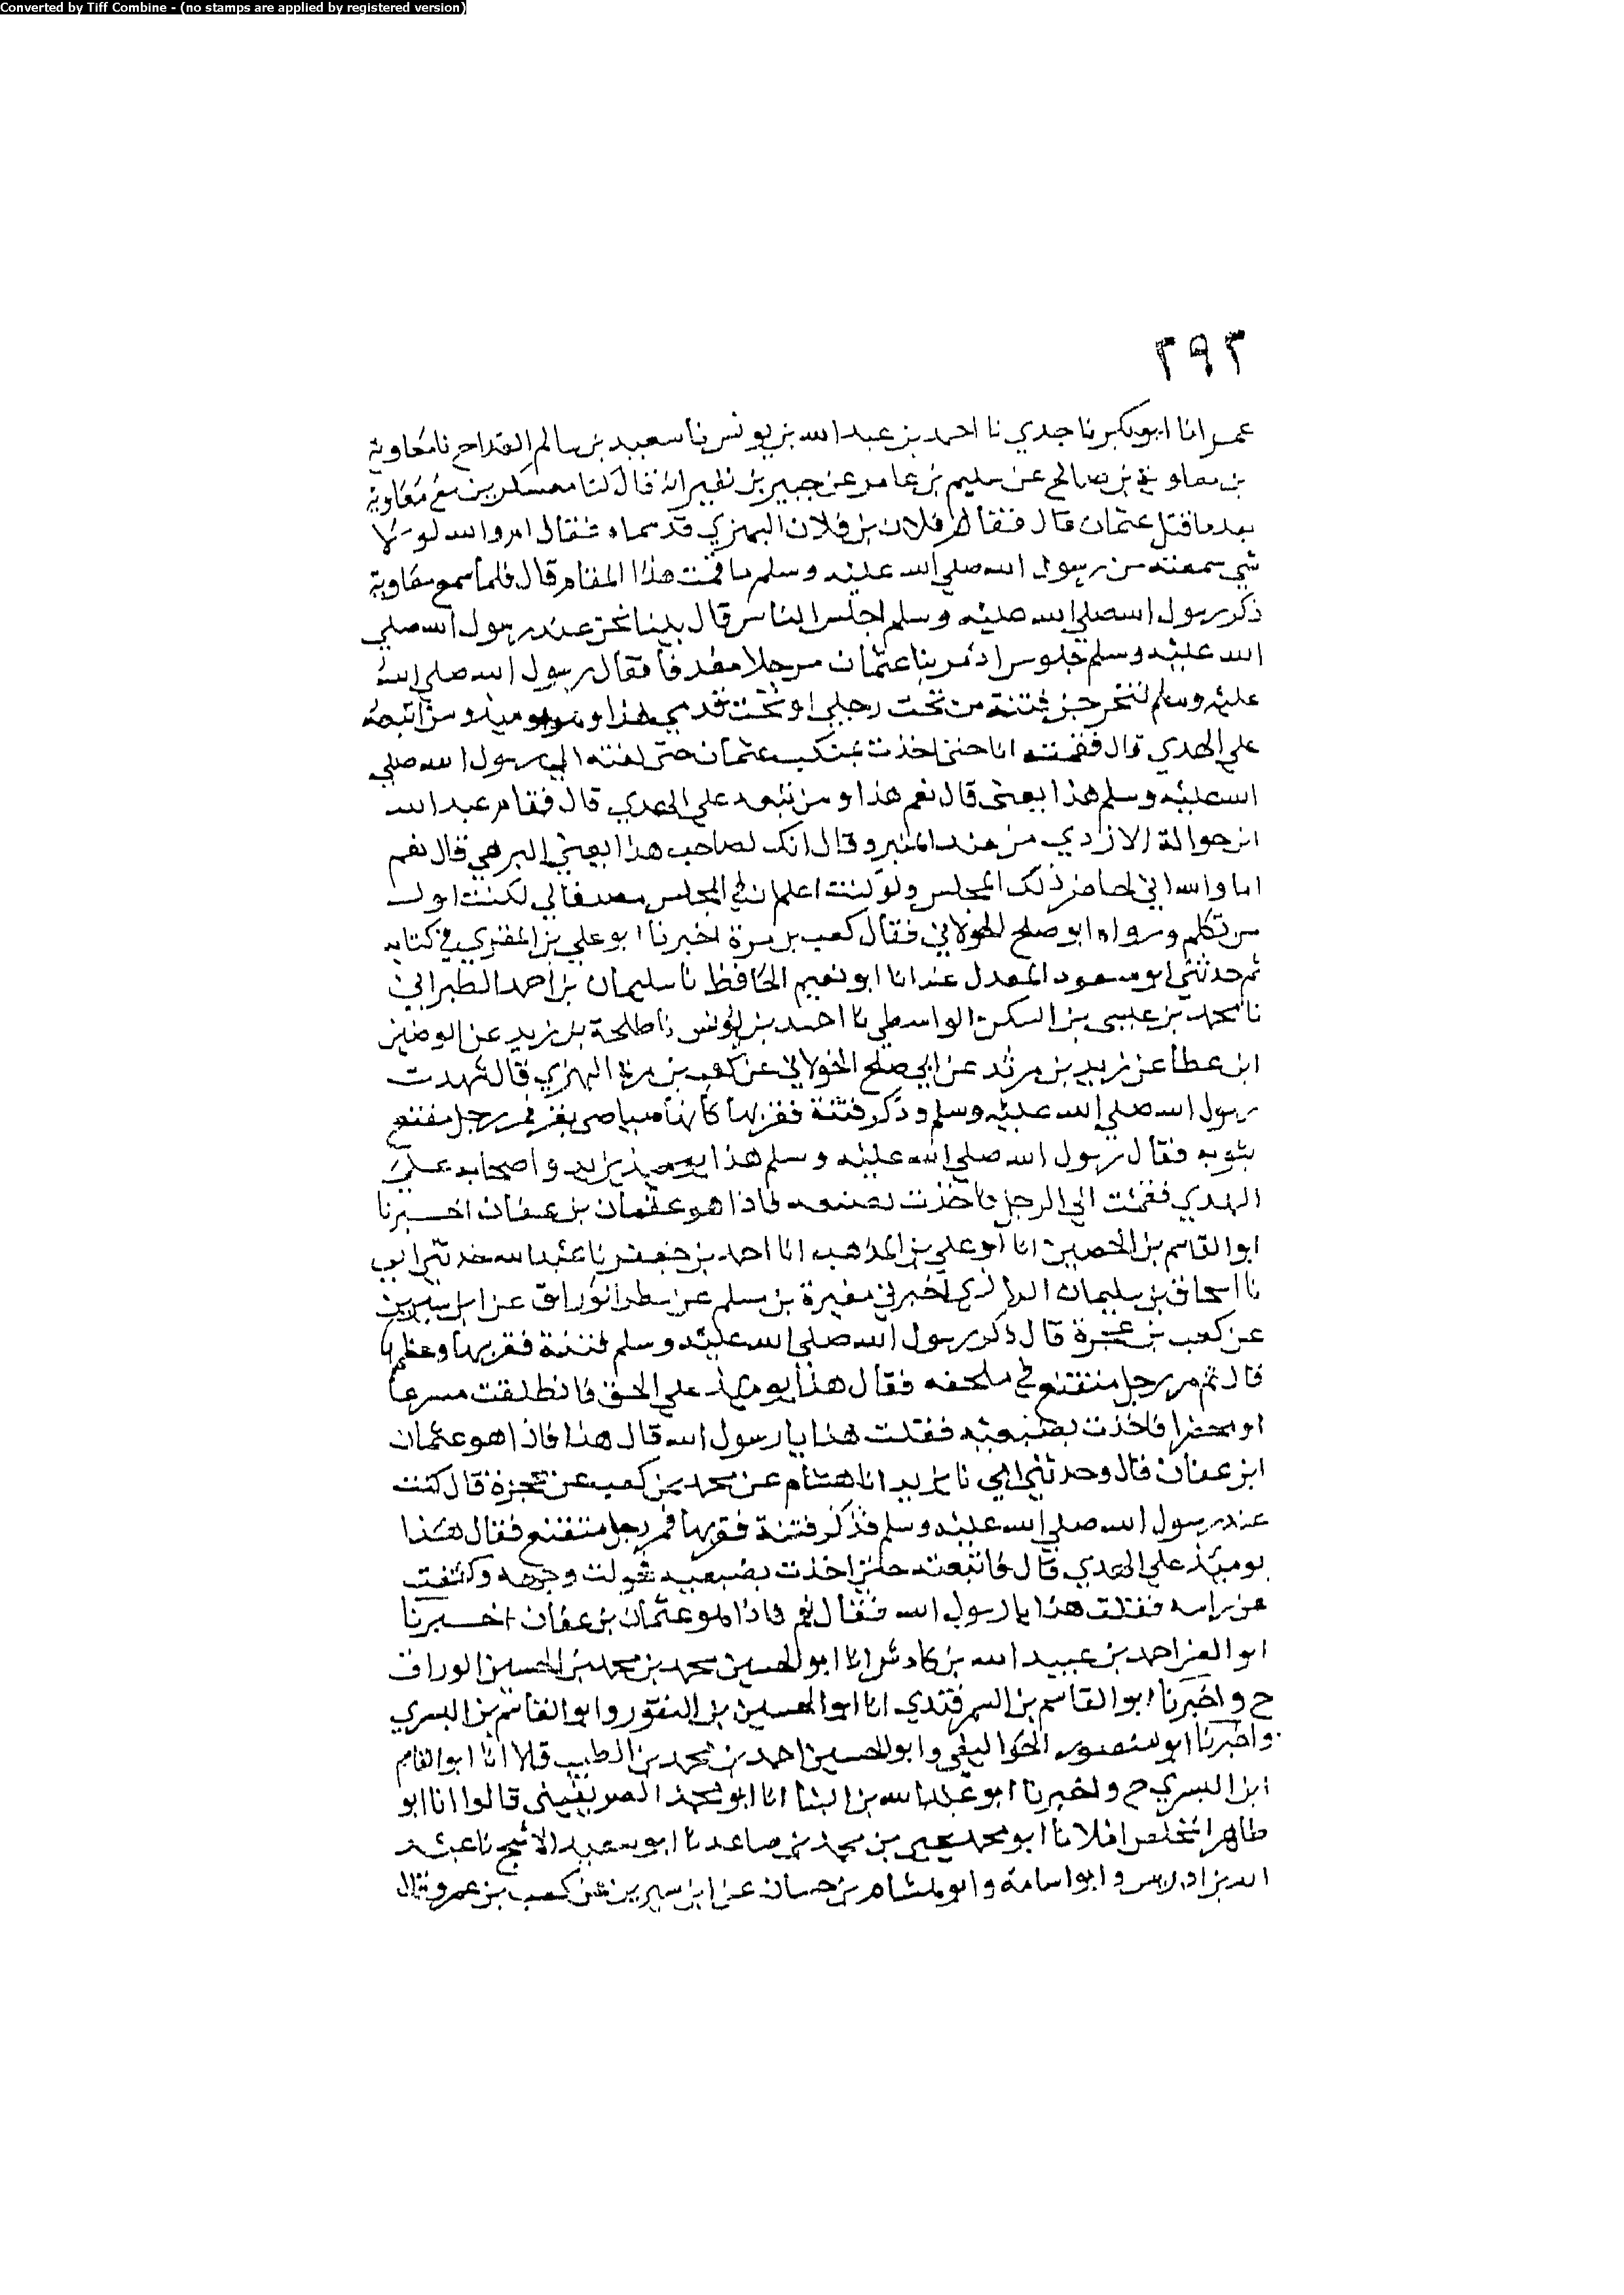 Converted by Tiff Combine - (no stamps are applied by registered version)
٢٩٣
عمر انا ابو بكر نا جدي نا احمد بن عبد الله بن يونس نا سعيد بن سالم القداح نا معاوية
بن معاوية بن صالح عن سليم بن عامر عن جبير بن نفير انه قال كنا معسكرين مع معاوية
بعد ما قتل عثمان قال فقام فلان بن فلان البهزي قد سماه فقال ام والله لولا
شي سمعته من رسول الله صلي الله عليه وسلم ما قمت هذا المقام قال فلما سمع معاوية
ذكر رسول الله صلي الله عليه وسلم اجلس الناس قال بينا نحن عند رسول الله صلي
الله عليه وسلم جلوس اذ مر بنا عثمان مرجلا مغدفا فقال رسول الله صلي الله
عليه وسلم لتخرجن فتنة من تحت رجلي او تحت قدمي هذا ومن اتبعه
علي الهدي قال فقمت انا حتى اخذت بمنكب عثمان حتى لفته الي رسول الله صلي
الله عليه وسلم هذا يعني قال نعم هذا ومن تبعه علي الهدي قال فقام عبد الله
ابن حوالة الازدي من عند المنبر وقال انك لصاحب هذا يعني قال نعم
اما والله اني لحاضر ذلك المجلس ولو كنت اعلم ان في المجلس مصدقا لي لكنت اول
من تكلم ورواه ابو صلح الخولاني فقال كعب بن مرة اخبرنا ابو علي بن المقري في كتابه
ثم حدثني ابو مسعود المعدل عنه انا ابو نعيم الحافظ نا سليمان بن احمد الطبراني
نا محمد بن عيسى بن السكن الواسطي نا احمد بن يونس نا طلحة بن زيد عن الوضين
ابن عطا عن يزيد بن مرثد عن ابي صلح الخولاني عن كعب بن مرة البهزي قال شهدت
رسول الله صلي الله عليه وسلم وذكر فتنة فقربها كانها صياصي بقر فمر رجل مقنع
بثوبه فقال رسول الله صلي الله عليه وسلم هذا يومئذ يريد واصحابه علي
الهدي فقمت الي الرجل فاخذت بضبعه فاذا هو عثمان بن عفان اخبرنا
ابو القاسم بن الحصين انا ابو علي بن المذهب انا احمد بن جعفر نا عبد الله حدثني ابي
نا اسحاق بن سليمان الرازي اخبرني مغيرة بن مسلم عن مطر الوراق عن ابن سيرين
عن كعب بن عجرة قال ذكر رسول الله صلي الله عليه وسلم فتنة فقربها وعظمها
قال ثم مر رجل متقنع في ملحفه فقال هذا يومئذ علي الحق فانطلقت مسرعا
او محضرا فاخذت بضبعيه فقلت هذا يا رسول الله قال هذا فاذا هو عثمان
ابن عفان قال وحدثني ابي نا يزيد انا هشام عن محمد بن كعب عن عجرة قال كنت
عند رسول الله صلي الله عليه وسلم فذكر فتنة فقربها فمر رجل متقنع فقال هذا
يومئذ علي الهدي قال فاتبعته حتى اخذت بضبعيه فحولت وجهه وكشفت
عن راسه فقلت هذا يا رسول الله فقال نعم فاذا هو عثمان بن عفان اخبرنا
ابو العز احمد بن عبيد الله بن كادش انا ابو الحسين محمد بن محمد بن الحسين الوراق
ح واخبرنا ابو القاسم بن السمرقندي انا ابو الحسين بن النقور وابو القاسم بن البسري
واخبرنا ابو منصور الجواليقي وابو الحسين احمد بن محمد بن الطيب قلا انا ابو القاسم
ابن البسري ح واخبرنا ابو عبد الله بن البنا انا ابو محمد الصريفيني قالوا انا ابو
طاهر المخلص املا نا ابو محمد يحيى بن محمد بن صاعد نا ابو سعيد الاشج نا عبد
الله بن ادريس وابو اسامة وابو هشام بن حسان عن ابن سيرين عن كعب بن عمرو قال